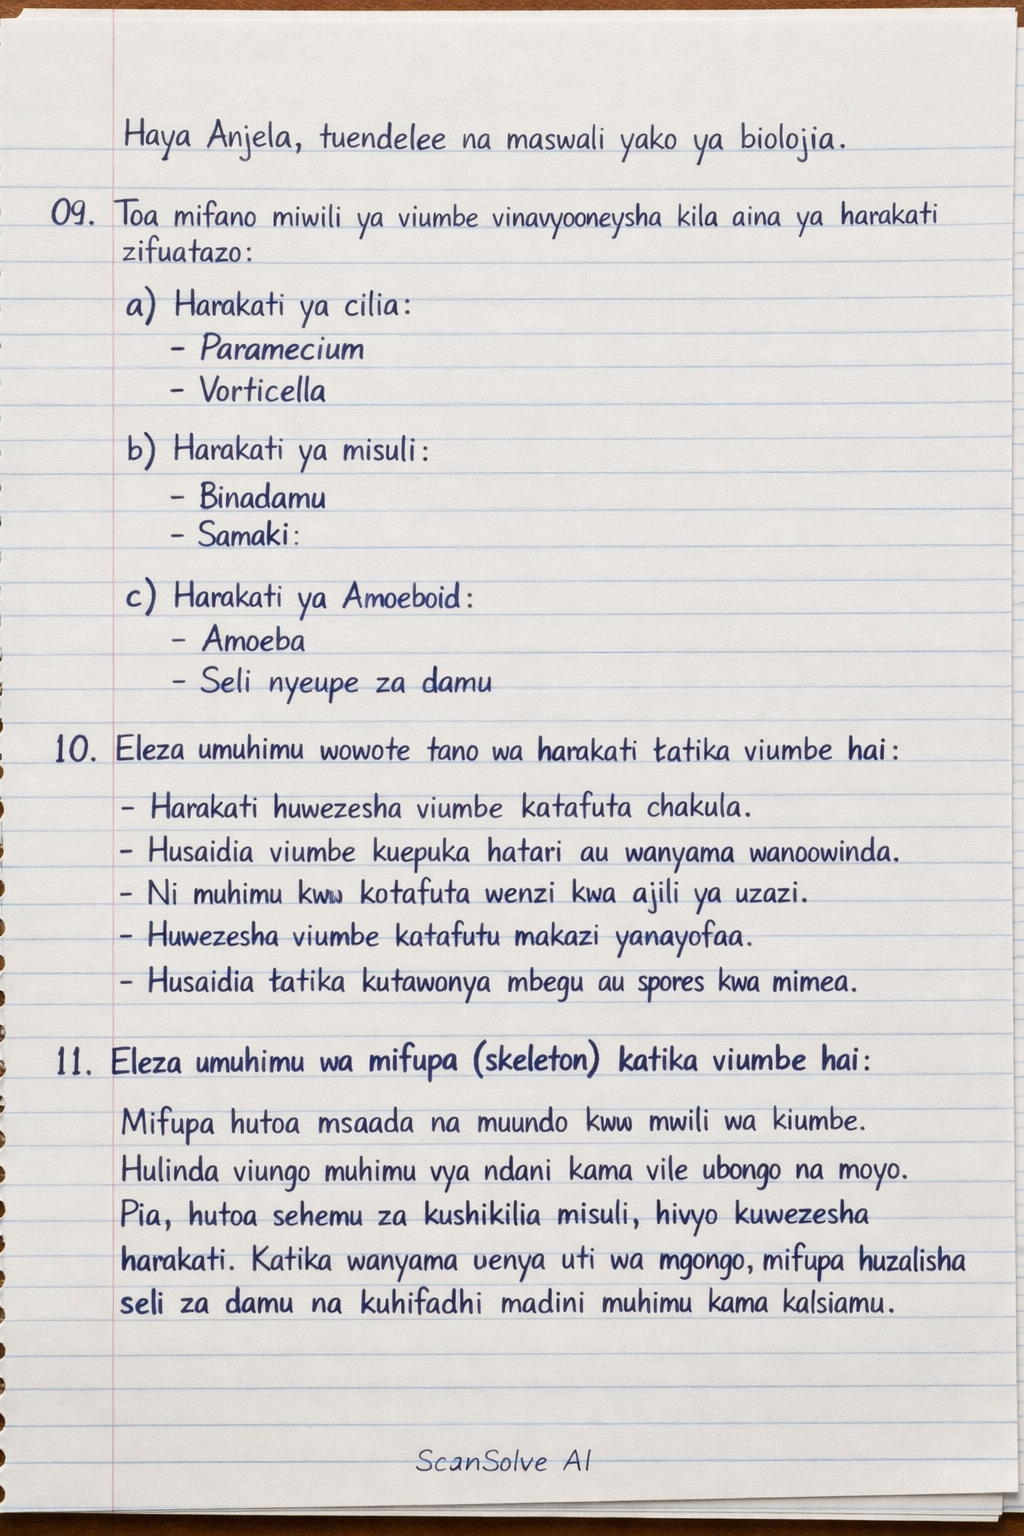 Haya Anjela, tuendelee na maswali yako ya biolojia.
09. Toa mifano miwili ya viumbe vinavyooneysha kila aina ya harakati
zifuatazo:
a) Harakati ya cilia:
- Paramecium
- Vorticella
b) Harakati ya misuli:
- Binadamu
- Samaki:
c) Harakati ya Amoeboid:
- Amoeba
- Seli nyeupe za damu
10. Eleza umuhimu wowote tano wa harakati tatika viumbe hai:
- Harakati huwezesha viumbe katafuta chakula.
- Husaidia viumbe kuepuka hatari au wanyama wanoowinda.
- Ni muhimu kww kotafuta wenzi kwa ajili ya uzazi.
- Huwezesha viumbe katafutu makazi yanayofaa.
- Husaidia tatika kutawonya mbegu au spores kwa mimea.
11. Eleza umuhimu wa mifupa (skeleton) katika viumbe hai:
Mifupa hutoa msaada na muundo kww mwili wa kiumbe.
Hulinda viungo muhimu vya ndani kama vile ubongo na moyo.
Pia, hutoa sehemu za kushikilia misuli, hivyo kuwezesha
harakati. Katika wanyama uenya uti wa mgongo, mifupa huzalisha
seli za damu na kuhifadhi madini muhimu kama kalsiamu.
ScanSolve AI